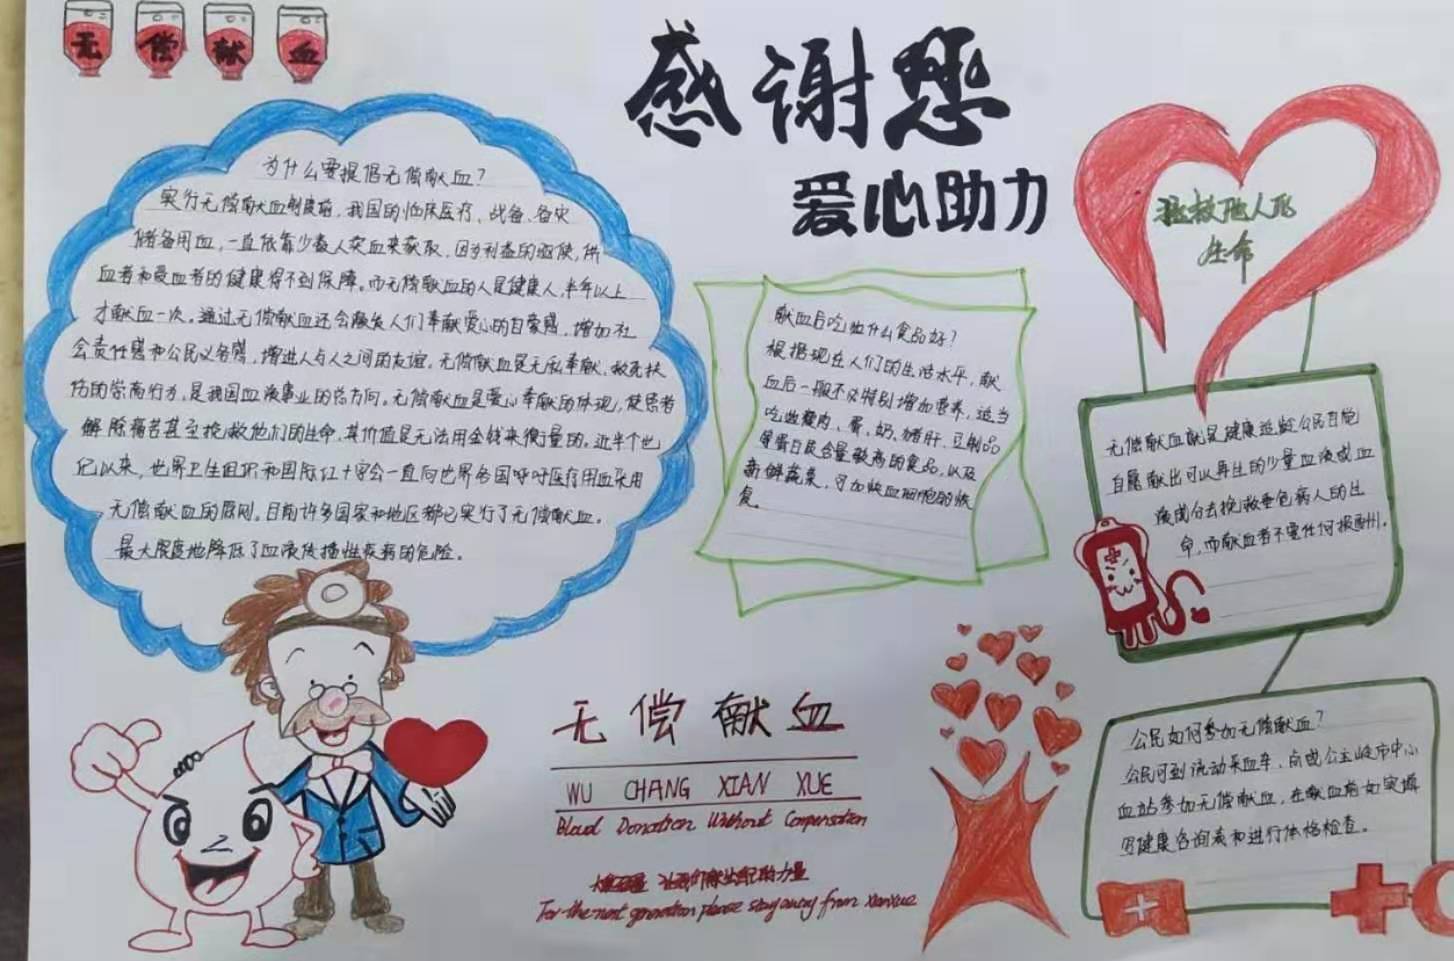 无偿献血
感谢您
爱心助力
为什么要提倡无偿献血？
实行无偿献血制度前，我国的临床医疗、战备、备灾
储备用血，一直依靠少数人卖血来获取，因为利益的驱使，供
血者和受血者的健康得不到保障。而无偿献血的人是健康人，半年以上
才献血一次。通过无偿献血还会激发人们奉献爱心的自豪感，增加社
会责任感和公民义务感，增进人与人之间的友谊。无偿献血是无私奉献，救死扶
伤的崇高行为，是我国血液事业的总方向。无偿献血是爱心奉献的体现，使患者
解除痛苦甚至挽救他们的生命，其价值是无法用金钱来衡量的。近半个世
纪以来，世界卫生组织和国际红十字会一直向世界各国呼吁医疗用血采用
无偿献血的原则。目前许多国家和地区都已实行了无偿献血。
最大限度地降低了血液传播性疾病的危险。
献血后吃些什么食品好？
根据现在人们的生活水平，献
血后一般不必特别增加营养，适当
吃些瘦肉、蛋、奶、猪肝、豆制品
等蛋白质含量较高的食品，以及
新鲜蔬菜，可加快血细胞的恢
复。
拯救他人的
生命
无偿献血就是健康适龄公民自
自愿献出可以再生的少量血液或血
液成分去挽救垂危病人的生
命，而献血者不需任何报酬。
公民如何参加无偿献血？
公民可到流动采血车、或公主岭市中心
血站参加无偿献血，在献血前如实填
写健康咨询表和进行体格检查。
无偿献血
WU CHANG XIAN XUE
Blood Donation Without Compensation
让我们献出自己的力量
For the next generation please stay away from xianxue